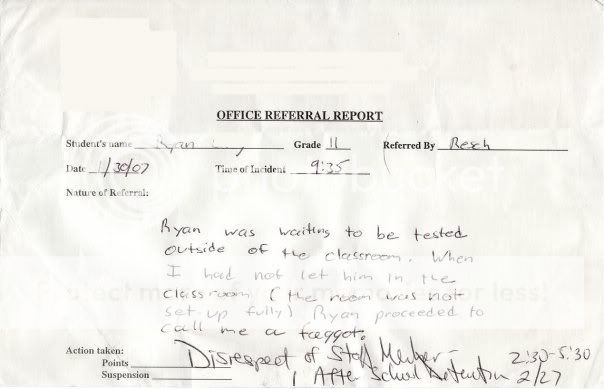 OFFICE REFERRAL REPORT
Student's name Ryan Grade 11 Referred By Resh
Date 1/30/07 Time of Incident 9:35
Nature of Referral:
Ryan was waiting to be tested
outside of the classroom. When
I had not let him in the
classroom (the room was not
set-up fully) Ryan proceeded to
call me a faggot.
Action taken: Disrespect of Staff Member - 2:30-5:30
Points
Suspension 1 After School Detention 2/27